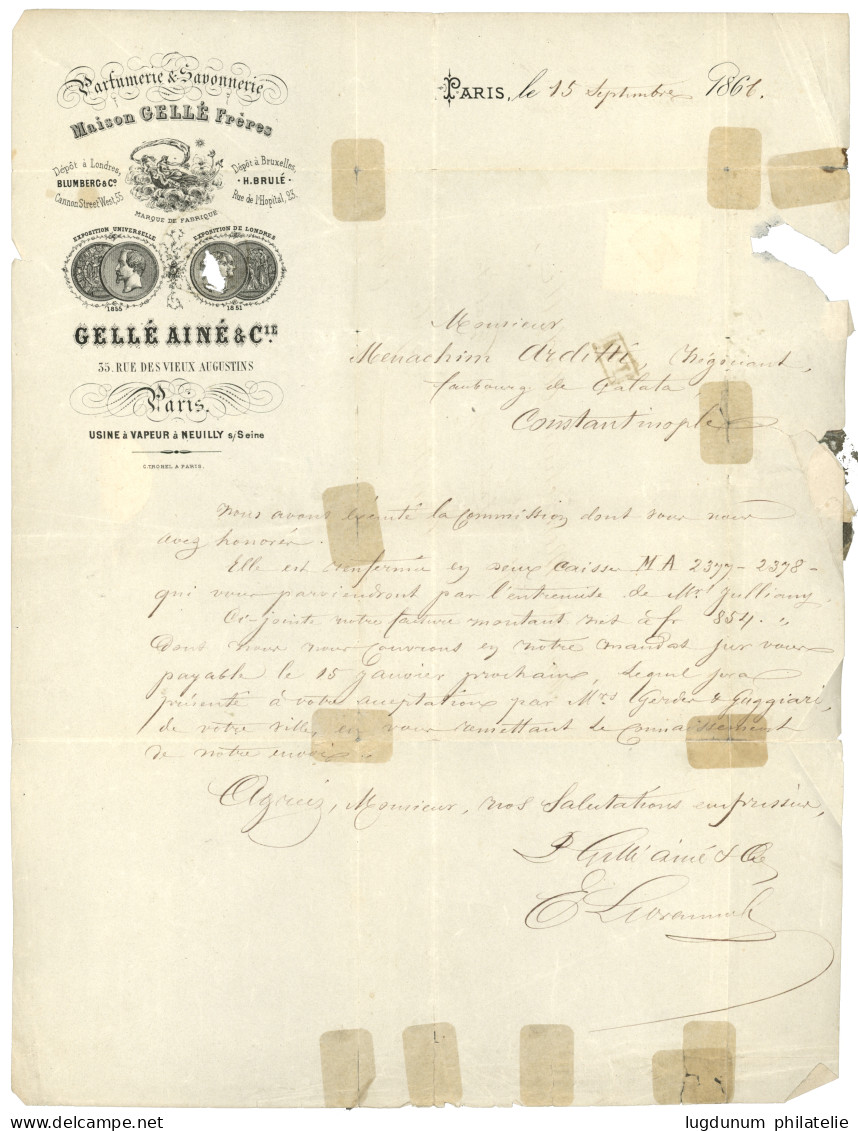 Parfumerie & Savonnerie
Maison GELLÉ Frères
Dépôt à Londres,
BLUMBERG & Cº
Cannon Street West, 55
Dépôt à Bruxelles,
H. BRULÉ
Rue de l'Hopital, 23.
MARQUE DE FABRIQUE
EXPOSITION UNIVERSELLE
EXPOSITION DE LONDRES
1855
1851
GELLÉ AINÉ & CIE
35. RUE DES VIEUX AUGUSTINS
Paris.
USINE à VAPEUR à NEUILLY s/Seine
PARIS, le 15 Septembre 1861.
Monsieur
Menachim Arditti, Négociant,
faubourg de Galata
Constantinople
Nous avons exécuté la Commission dont vous nous
avez honorés.
Elle est renfermée en deux caisses M A 2377-2378-
qui vous parviendront par l'entremise de Mrs Julliany.
Ci-jointe notre facture montant net à fr 854. "
Dont nous nous couvrons en notre mandat sur vous
payable le 15 Janvier prochain, lequel sera
présenté à votre acceptation par Mrs Gerder & Guggiari,
de votre ville, en vous remettant le connaissement
de notre envoi.
Agréez, Monsieur, nos Salutations empressées,
P Gellé ainé & Cie
lugdunum philatelie